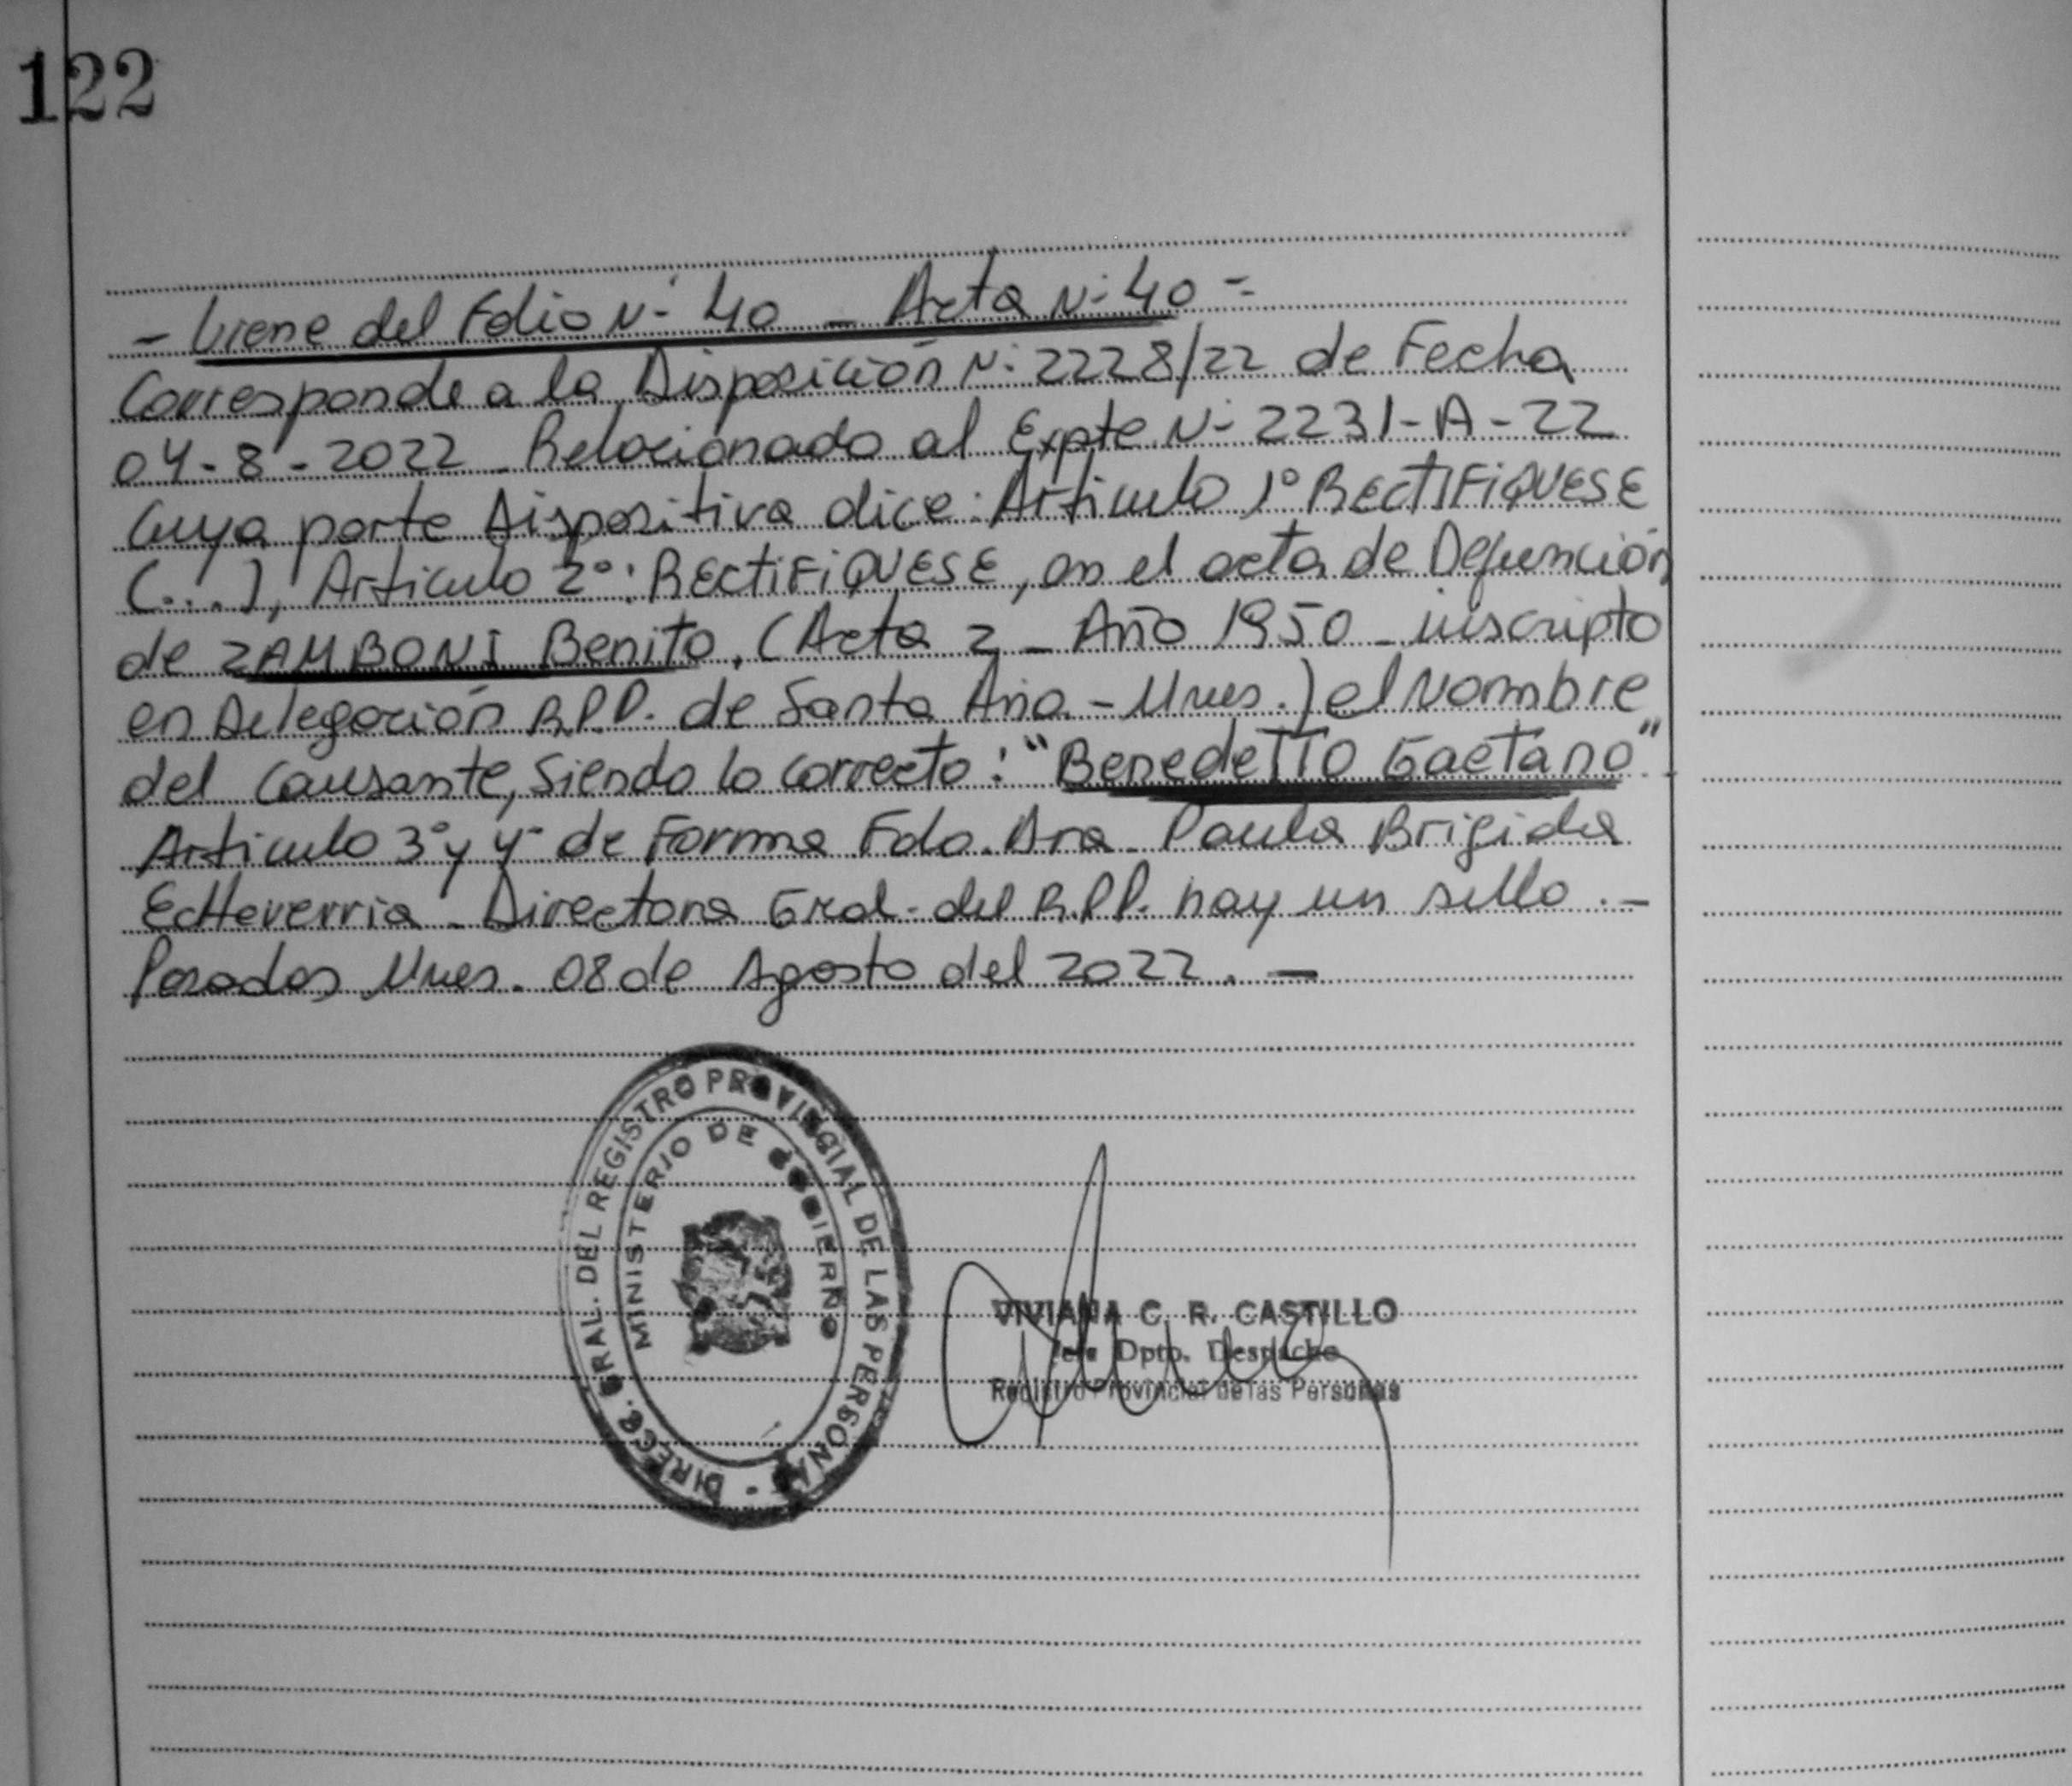 122
- Viene del Folio N- 40 - Acta N- 40 =
Corresponde a la Disposición N- 2228/22 de Fecha
04-8-2022 Relacionado al Expte N- 2231-A-22
Cuya parte Dispositiva dice: Articulo 1° RECTIFIQUESE
(...), Articulo 2°: RECTIFIQUESE, en el acta de Defunción
de ZAMBONI Benito, (Acta 2 - Año 1950 - inscripto
en Delegación R.P.P. de Santa Ana - Mnes.) el Nombre
del Causante, Siendo lo correcto: "BenedeTTO GaeTano".
Articulo 3° y 4° de Forma Fdo. Dra. Paula Brigida
EcHeverria - Directora Gral. del R.P.P. hay un sello. -
Posadas Mnes. 08 de Agosto del 2022. -
DIRECC. GRAL. DEL REGISTRO PROVINCIAL DE LAS PERSONAS -
MINISTERIO DE GOBIERNO
VIVIANA C. R. CASTILLO
Jefe Dpto. Despacho
Registro Provincial de las Personas